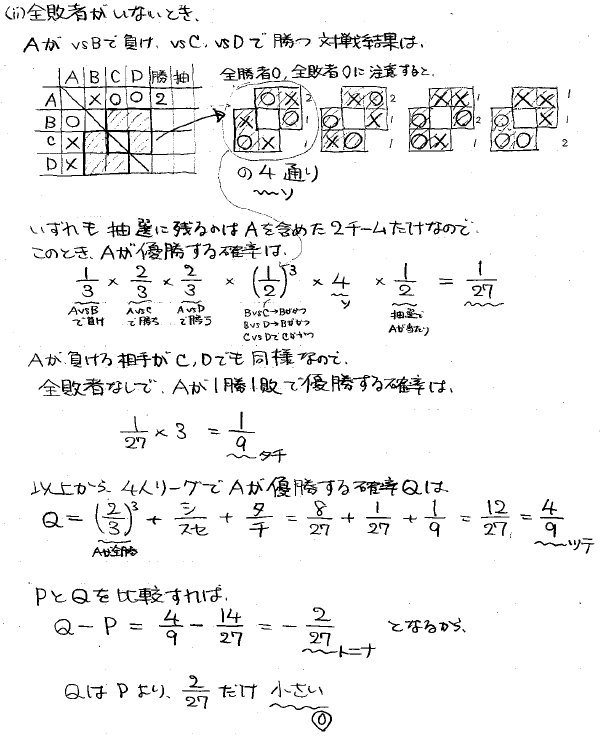 (ii) 全敗者がいないとき、
Aが vsBで負け、vsC, vsDで勝つ対戦結果は、
A B C D 勝 抽
A ＼ × ○ ○ 2
B ○
C ×
D ×
全勝者0, 全敗者0に注意すると、
○ × 2
× ○ 1
○ × 1
× ○ 2
○ × 1
× ○ 1
× × 1
○ ○ 2
○ × 1
× × 1
○ × 1
○ ○ 2
の4通り
ソ
いずれも抽選に残るのはAを含めた2チームだけなので
このとき、Aが優勝する確率は、
1/3 × 2/3 × 2/3 × (1/2)^3 × 4 × 1/2 = 1/27
AvsBで負け AvsCで勝ち AvsDで勝ち BvsC→Bがかつ BvsD→Bがかつ CvsDでCがかつ ソ 抽選でAが当たり
Aが負ける相手がC, Dでも同様なので、
全敗者なしで、Aが1勝1敗で優勝する確率は、
1/27 × 3 = 1/9 タチ
以上から、4人リーグでAが優勝する確率Qは、
Q = (2/3)^3 + シ/スセ + タ/チ = 8/27 + 1/27 + 1/9 = 12/27 = 4/9 ツテ
Aが全勝
PとQを比較すれば、
Q − P = 4/9 − 14/27 = − 2/27 トニナ となるから、
QはPより、2/27 だけ 小さい
⓪